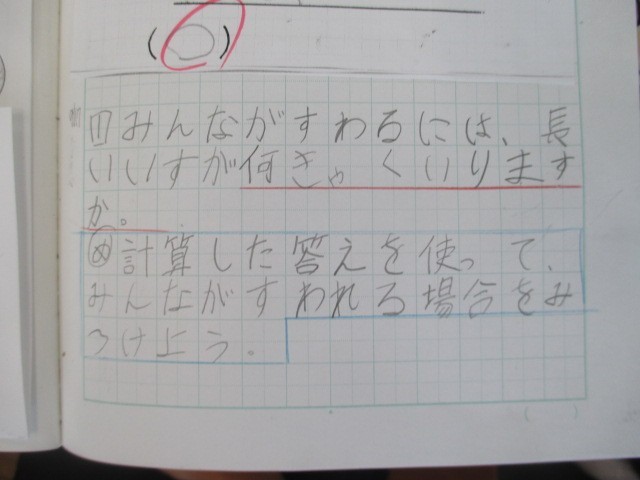 (○)
⑴みんながすわるには、長
いいすが何きゃくいります
か。
め計算した答えを使って、
みんながすわれる場合をみ
つけよう。
( )